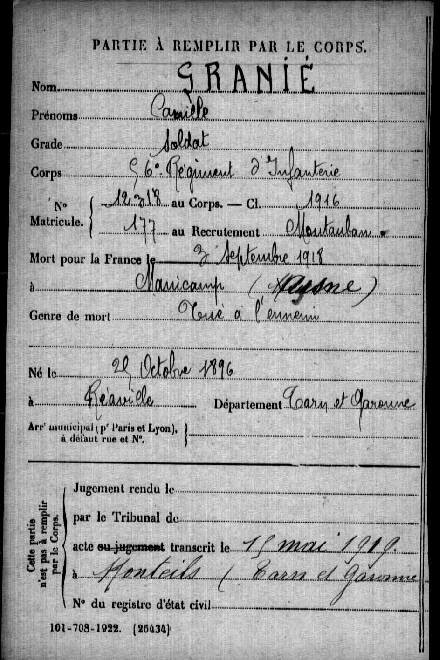 PARTIE À REMPLIR PAR LE CORPS.
Nom GRANIÉ
Prénoms Camille
Grade Soldat
Corps 56e Régiment d'Infanterie
No 12318 au Corps. — Cl. 1916
Matricule. 177 au Recrutement Montauban
Mort pour la France le 3 Septembre 1918
à Manicamp (Aysne)
Genre de mort Tué à l'ennemi
Né le Octobre 1896
à Réalville Département Tarn et Garonne
Arrt municipal (pr Paris et Lyon),
à défaut rue et No.
Cette partie
n'est pas à remplir
par le Corps.
Jugement rendu le
par le Tribunal de
acte ou jugement transcrit le 15 mai 1919.
à Monteils (Tarn et Garonne
No du registre d'état civil
101-708-1922. (26434)